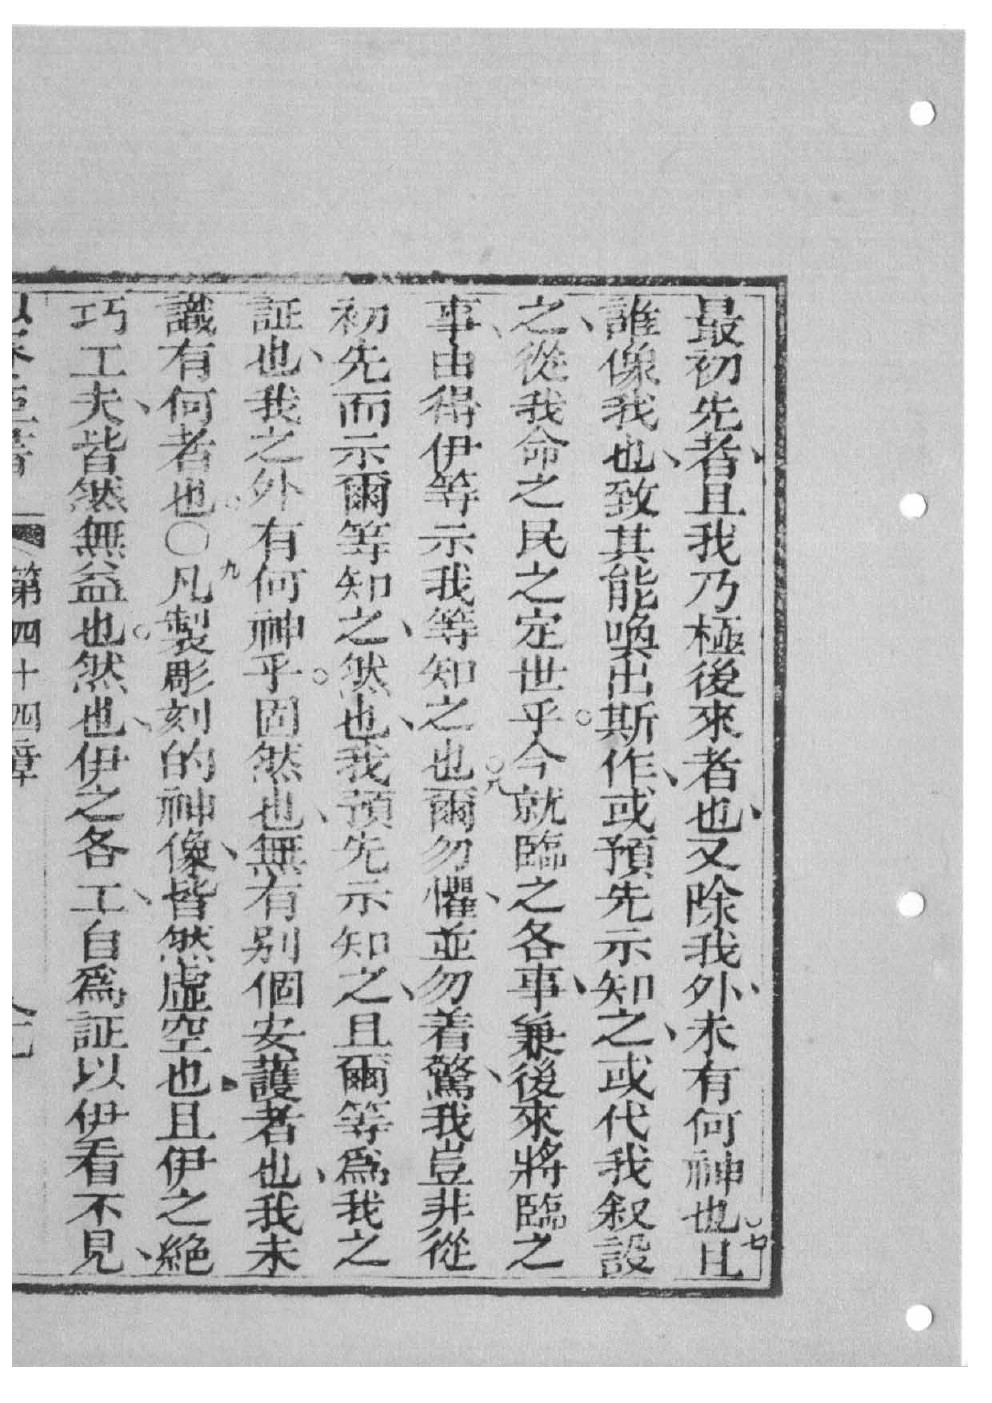 最初先者且我乃極後來者也又除我外未有何神也七且
誰像我也致其能喚出斯作或預先示知之或代我叙設
之從我命之民之定世乎今就臨之各事兼後來將臨之
事由得伊等示我等知之也八爾勿懼並勿着驚我豈非從
初先而示爾等知之然也我預先示知之且爾等爲我之
証也我之外有何神乎固然也無有別個安護者也我未
識有何者也〇九凡製彫刻的神像皆然虛空也且伊之絶
巧工夫皆然無益也然也伊之各工自爲証以伊看不見
第四十四章